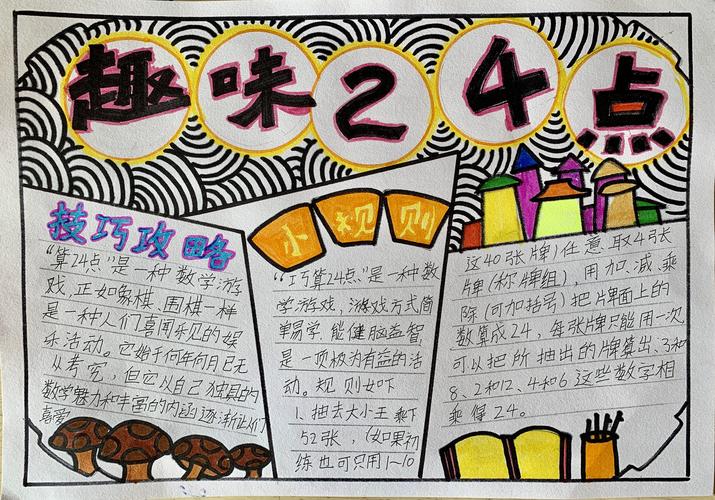 趣味24点
技巧攻略
“算24点”是一种数学游
戏，正如象棋、围棋一样
是一种人们喜闻乐见的娱
乐活动。它始于何年何月已无
从考究，但它以自己独具的
数学魅力和丰富的内涵逐渐让人们
喜爱
小规则
“巧算24点”是一种数
学游戏，游戏方式简
单易学 能健脑益智，
是一项极为有益的活
动。规则如下
1、抽去大小王 剩下
52张，（如果初
练也可只用1～10
这40张牌）任意取4张
牌（称牌组），用加、减、乘
除（可加括号）把牌面上的
数算成24，每张牌只能用一次
可以把所抽出的牌算出、3和
8、2和12、4和6这些数字相
乘得24。